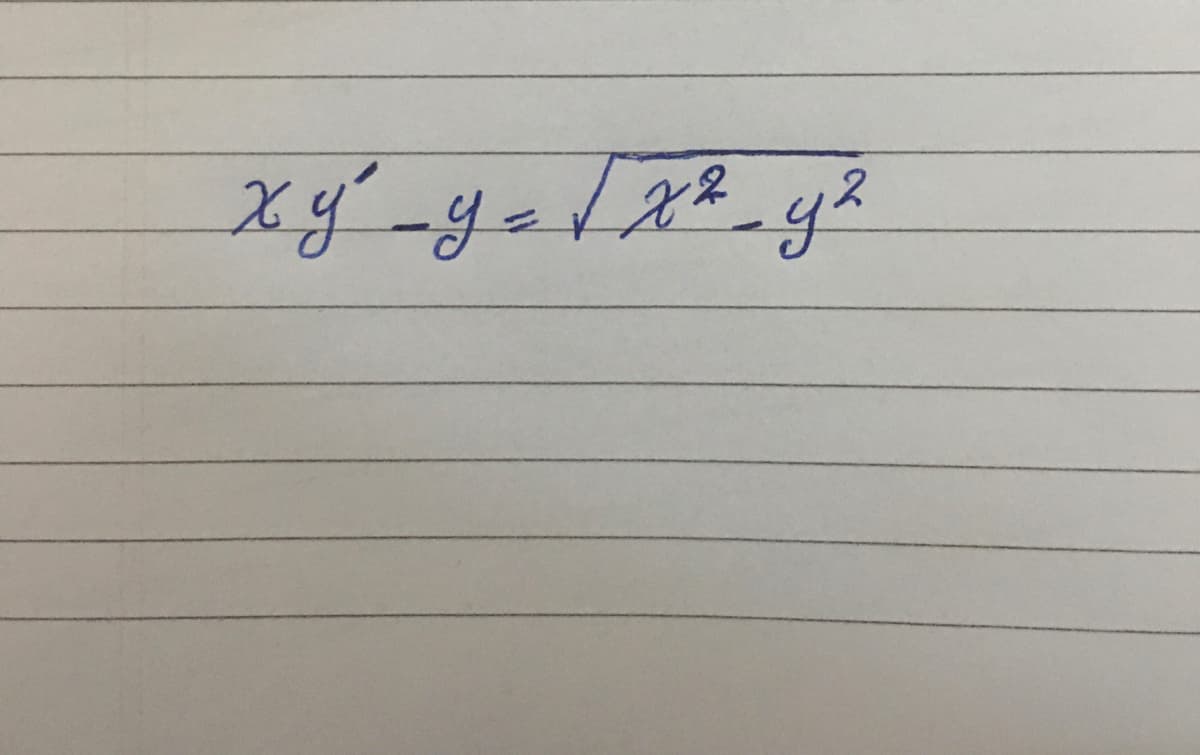 xy′ - y = √(x² - y²)